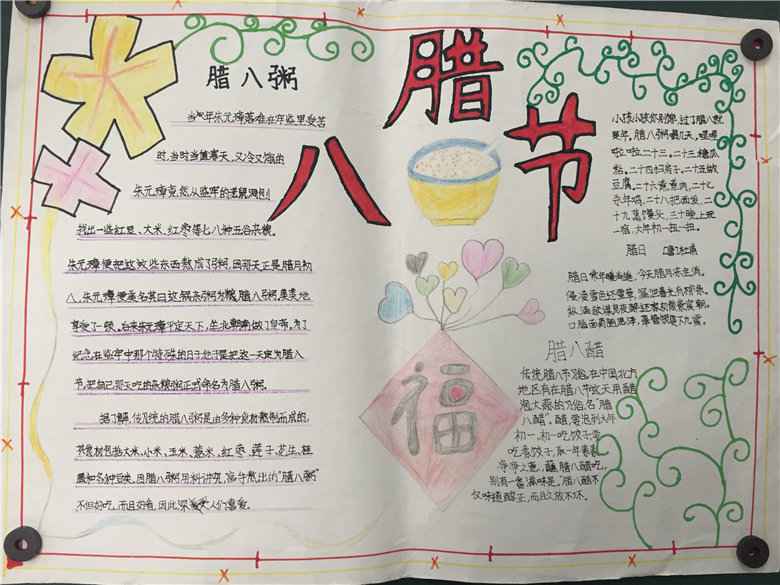 腊八节
腊八粥
当年朱元璋落难在牢监里受苦
时,当时正值寒天,又冷又饿的
朱元璋竟然从监牢的老鼠洞刨
找出一些红豆、大米、红枣等七八种五谷杂粮。
朱元璋便把这些东西熬成了粥,因那天正是腊月初
八,朱元璋便美名其曰这锅杂粥为腊八粥,美美地
享受了一顿。后来朱元璋平定天下,坐北朝南做了皇帝,为了
纪念在监牢中那个特殊的日子他于是把这一天定为腊八
节,把自己那天吃的杂粮粥正式命名为腊八粥。
据了解,传统的腊八粥是由多种食材熬制而成的,
大米、小米、玉米、薏米、红枣、莲子、花生、桂
圆和各种豆类,因腊八粥用料讲究,
不但好吃,而且好看,因此深受人们喜爱。
小孩小孩你别馋,过了腊八就
是年。腊八粥喝几天,哩哩
啦啦二十三。二十三糖瓜
粘。二十四扫房子。二十五做
豆腐。二十六煮煮肉,二十七
杀年鸡,二十八把面发,二
十九蒸馒头,三十晚上玩一
宿,大年初一扭一扭。
腊日 唐 杜甫
腊日常年暖尚遥,今天腊月冻全消。
侵凌雪色还萱草,漏泄春光有柳条。
纵酒欲谋良夜醉,还家初散紫宸朝。
口脂面药随恩泽,翠管银罂下九霄。
腊八醋
传统腊八节习俗,在中国北方
地区有在腊八节这天用醋
泡大蒜的习俗,名"腊
八醋"。醋,常泡到大年
初一,初一吃饺子
吃素饺子,取一年素素
净净之意,蘸腊八醋吃,
别有一番滋味是。"腊八醋不
仅味道醇正,而且久放不坏。
福